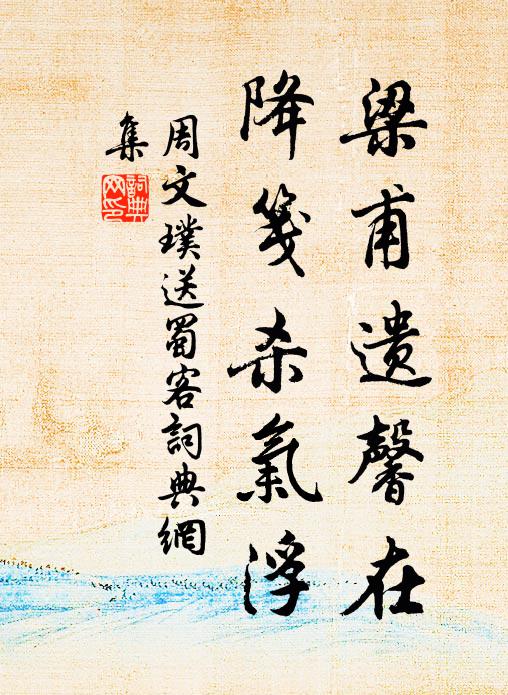 梁甫遗馨在
降笺杀氣浮
周文璞送蜀客詞典網
集
詞典
网印